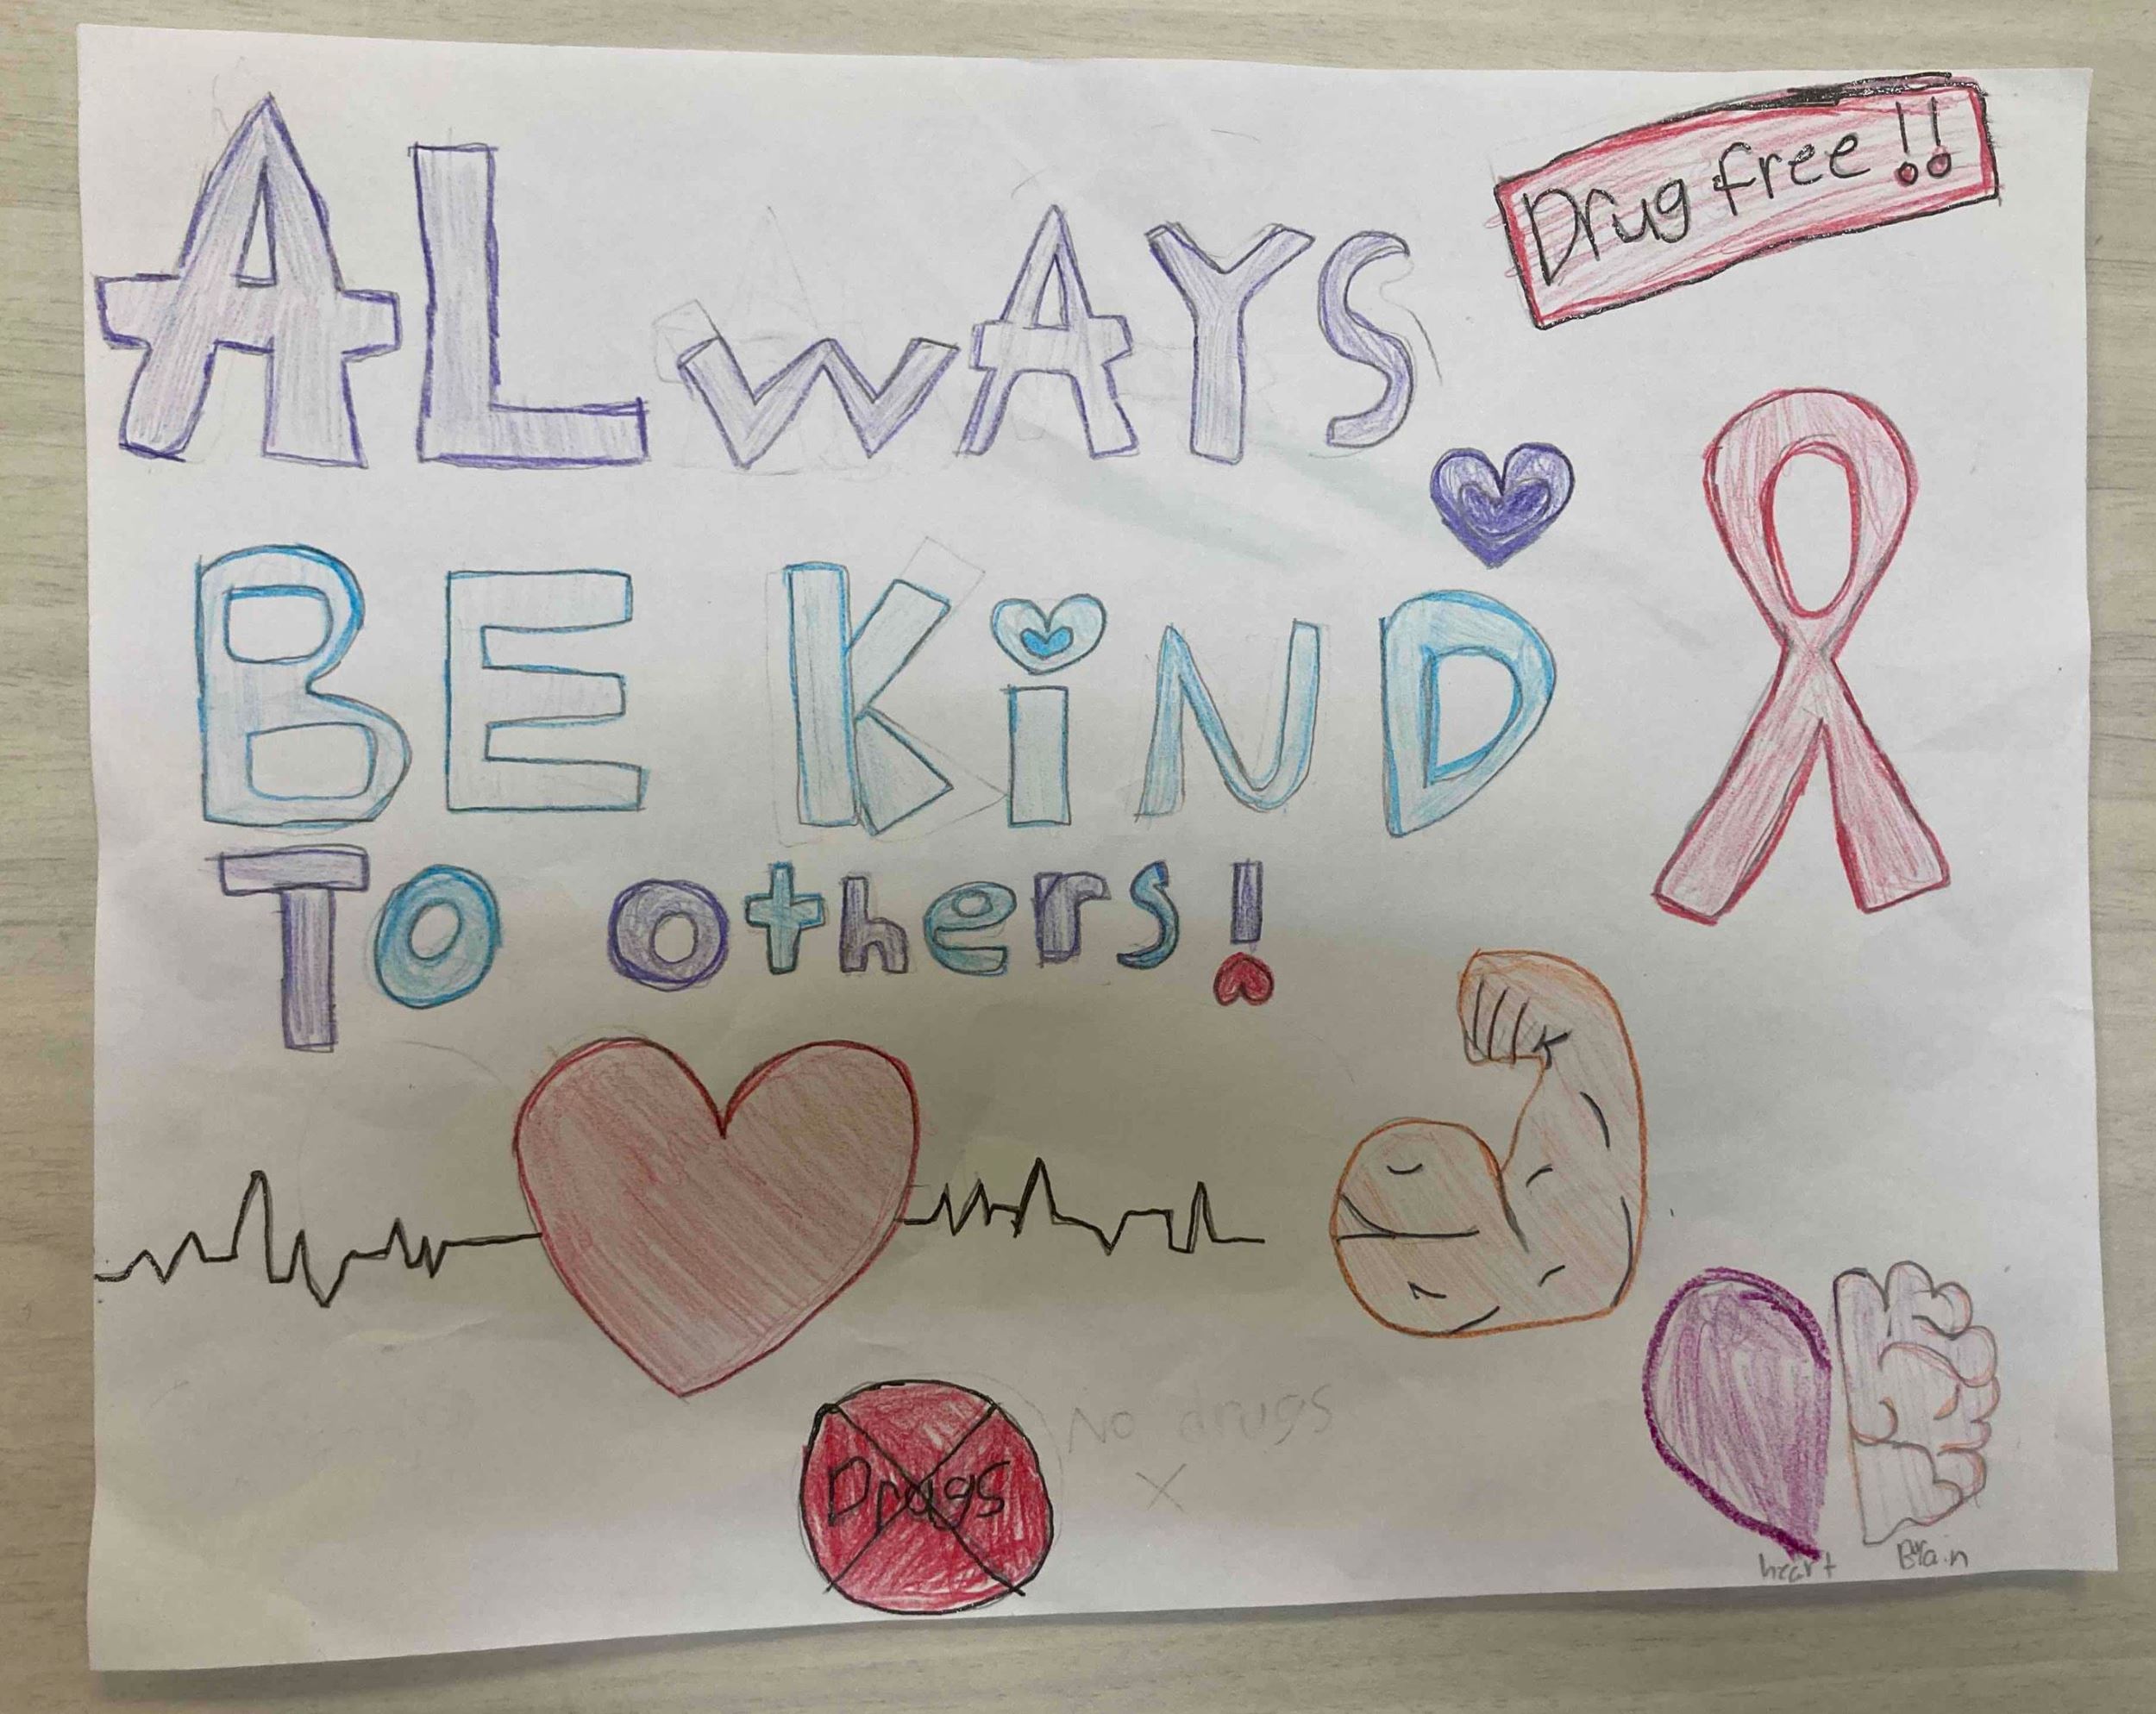 ALwAYS
Drug free!!
BE KiND
To others!
No drugs
Drugs
heart Brain